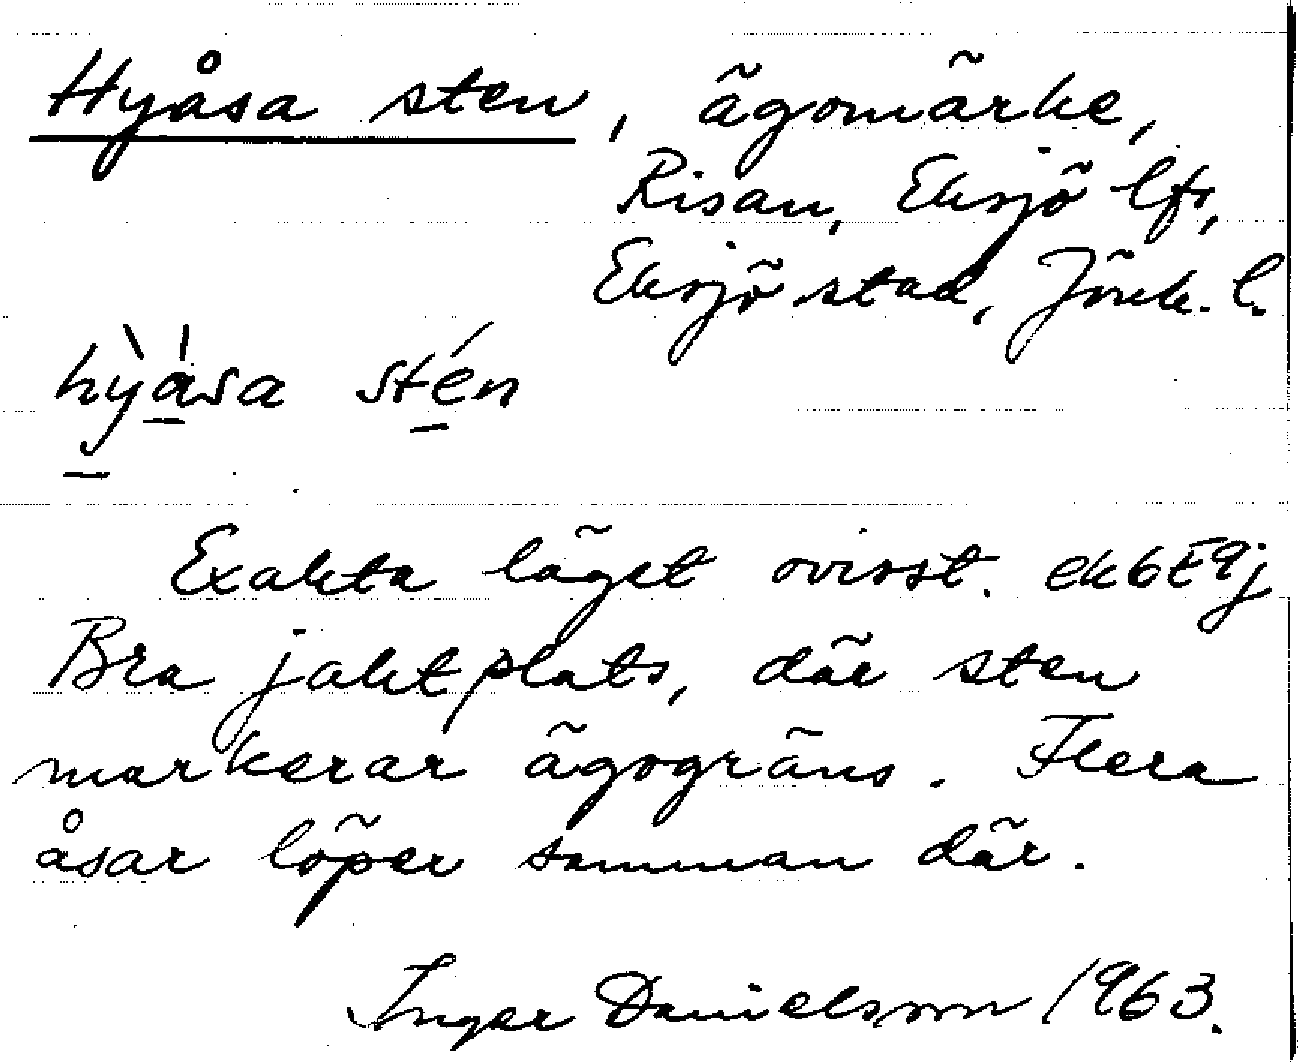 Hyåsa sten, ägomärke,
Risan, Eksjö lfs,
Eksjö stad, Jönk. l.
hỳása stén
Exakta läget ovisst. ek6E9j
Bra jaktplats, där sten
markerar ägogräns. Flera
åsar löper samman där.
Inger Danielsson 1963.